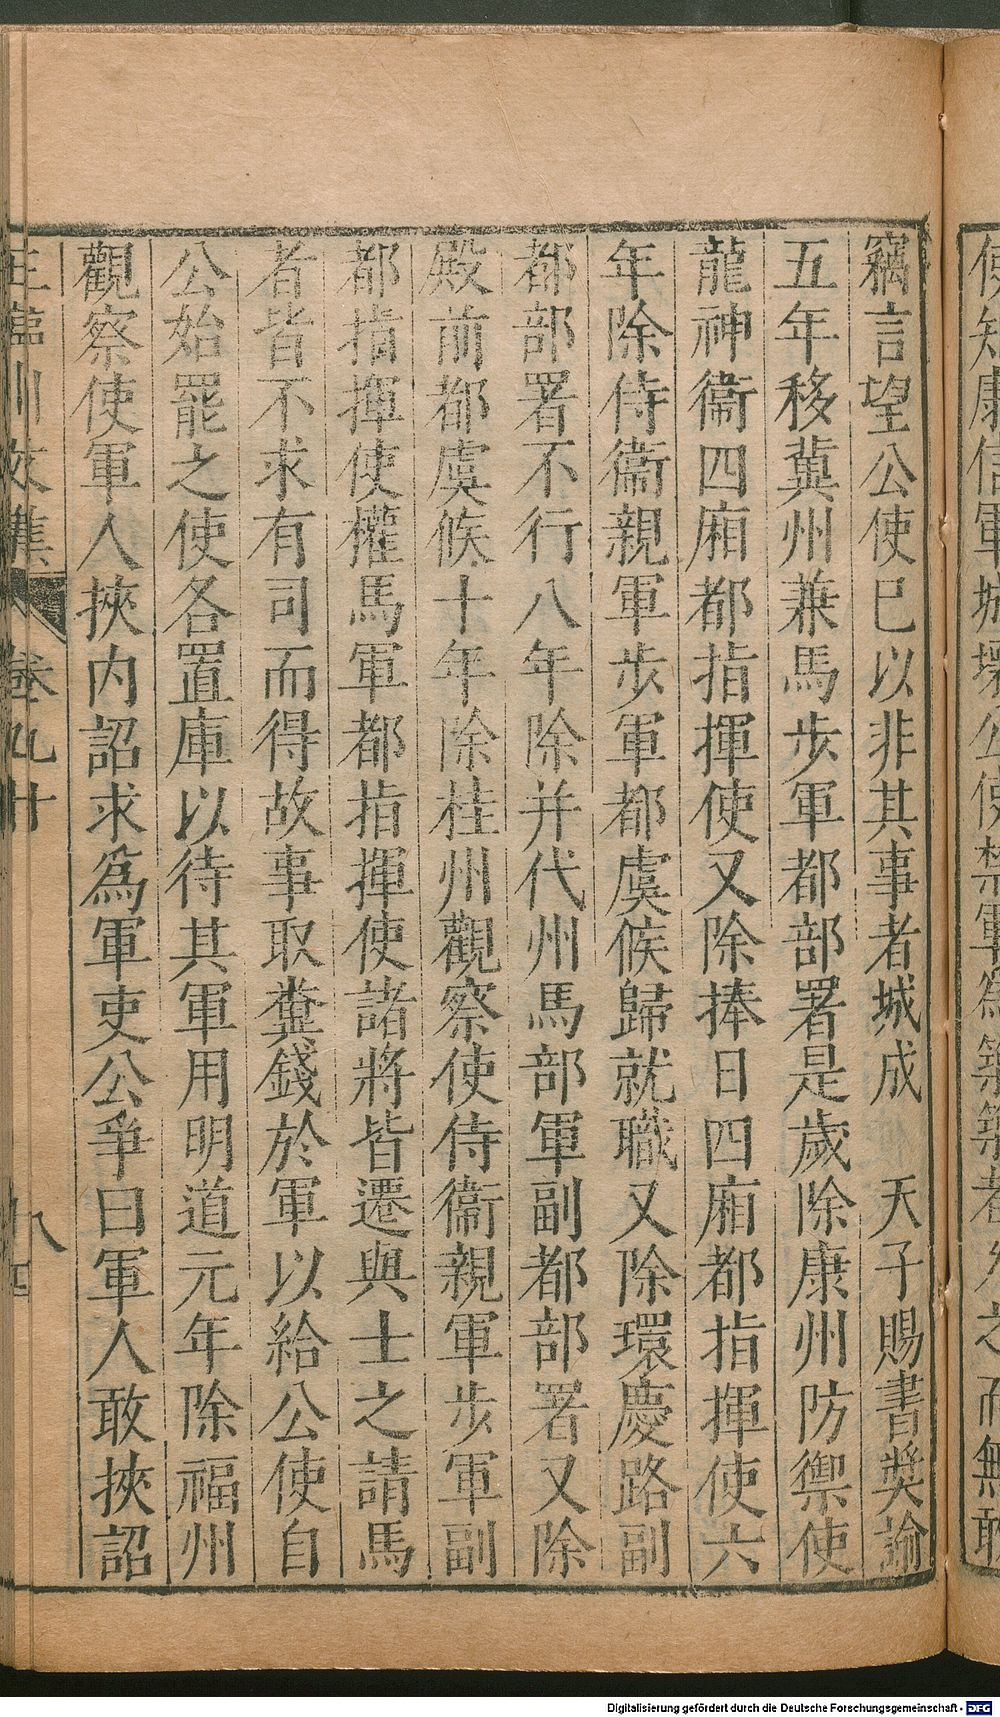 使知康信軍城壞公使禁軍爲築築者久之而無敢
竊言望公使已以非其事者城成　天子賜書奬諭
五年移冀州兼馬步軍都部署是歲除康州防禦使
龍神衞四廂都指揮使又除捧日四廂都指揮使六
年除侍衞親軍步軍都虞候歸就職又除環慶路副
都部署不行八年除并代州馬部軍副都部署又除
殿前都虞候十年除桂州觀察使侍衞親軍步軍副
都指揮使權馬軍都指揮使諸將皆遷與士之請馬
者皆不求有司而得故事取糞錢於軍以給公使自
公始罷之使各置庫以待其軍用明道元年除福州
觀察使軍人挾内詔求爲軍吏公爭曰軍人敢挾詔
王臨川文集　卷九十　八
Digitalisierung gefördert durch die Deutsche Forschungsgemeinschaft - DFG